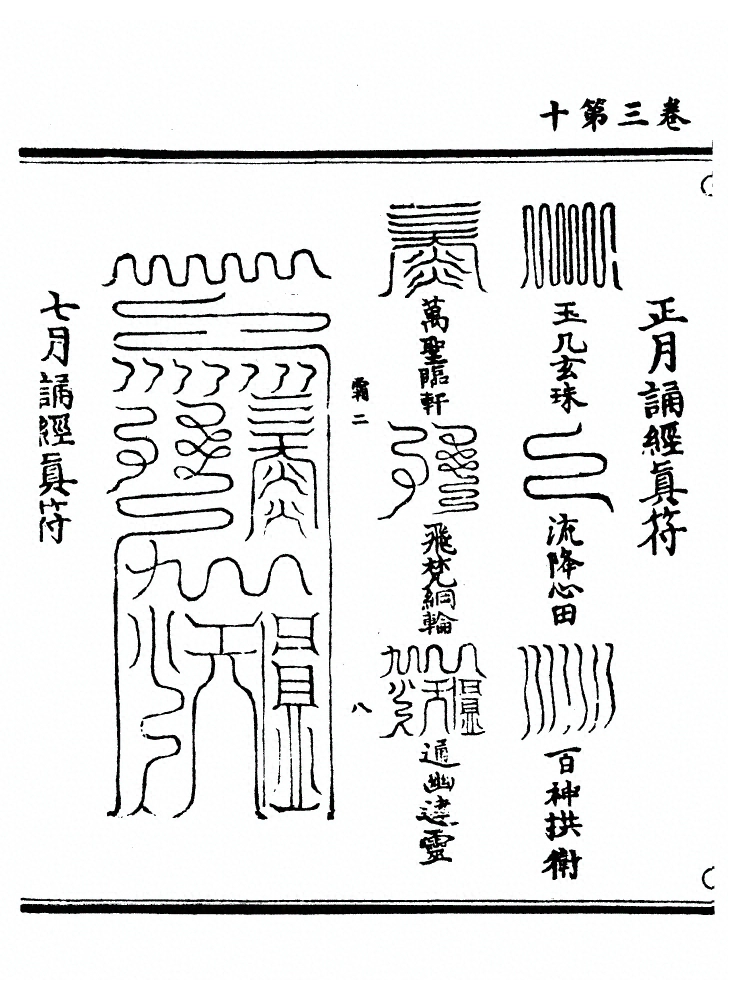 十第三卷
正月誦經真符
玉几玄珠
流降心田
百神拱衛
萬聖臨軒
飛梵綱輪
通幽達靈
霜二
八
七月誦經真符